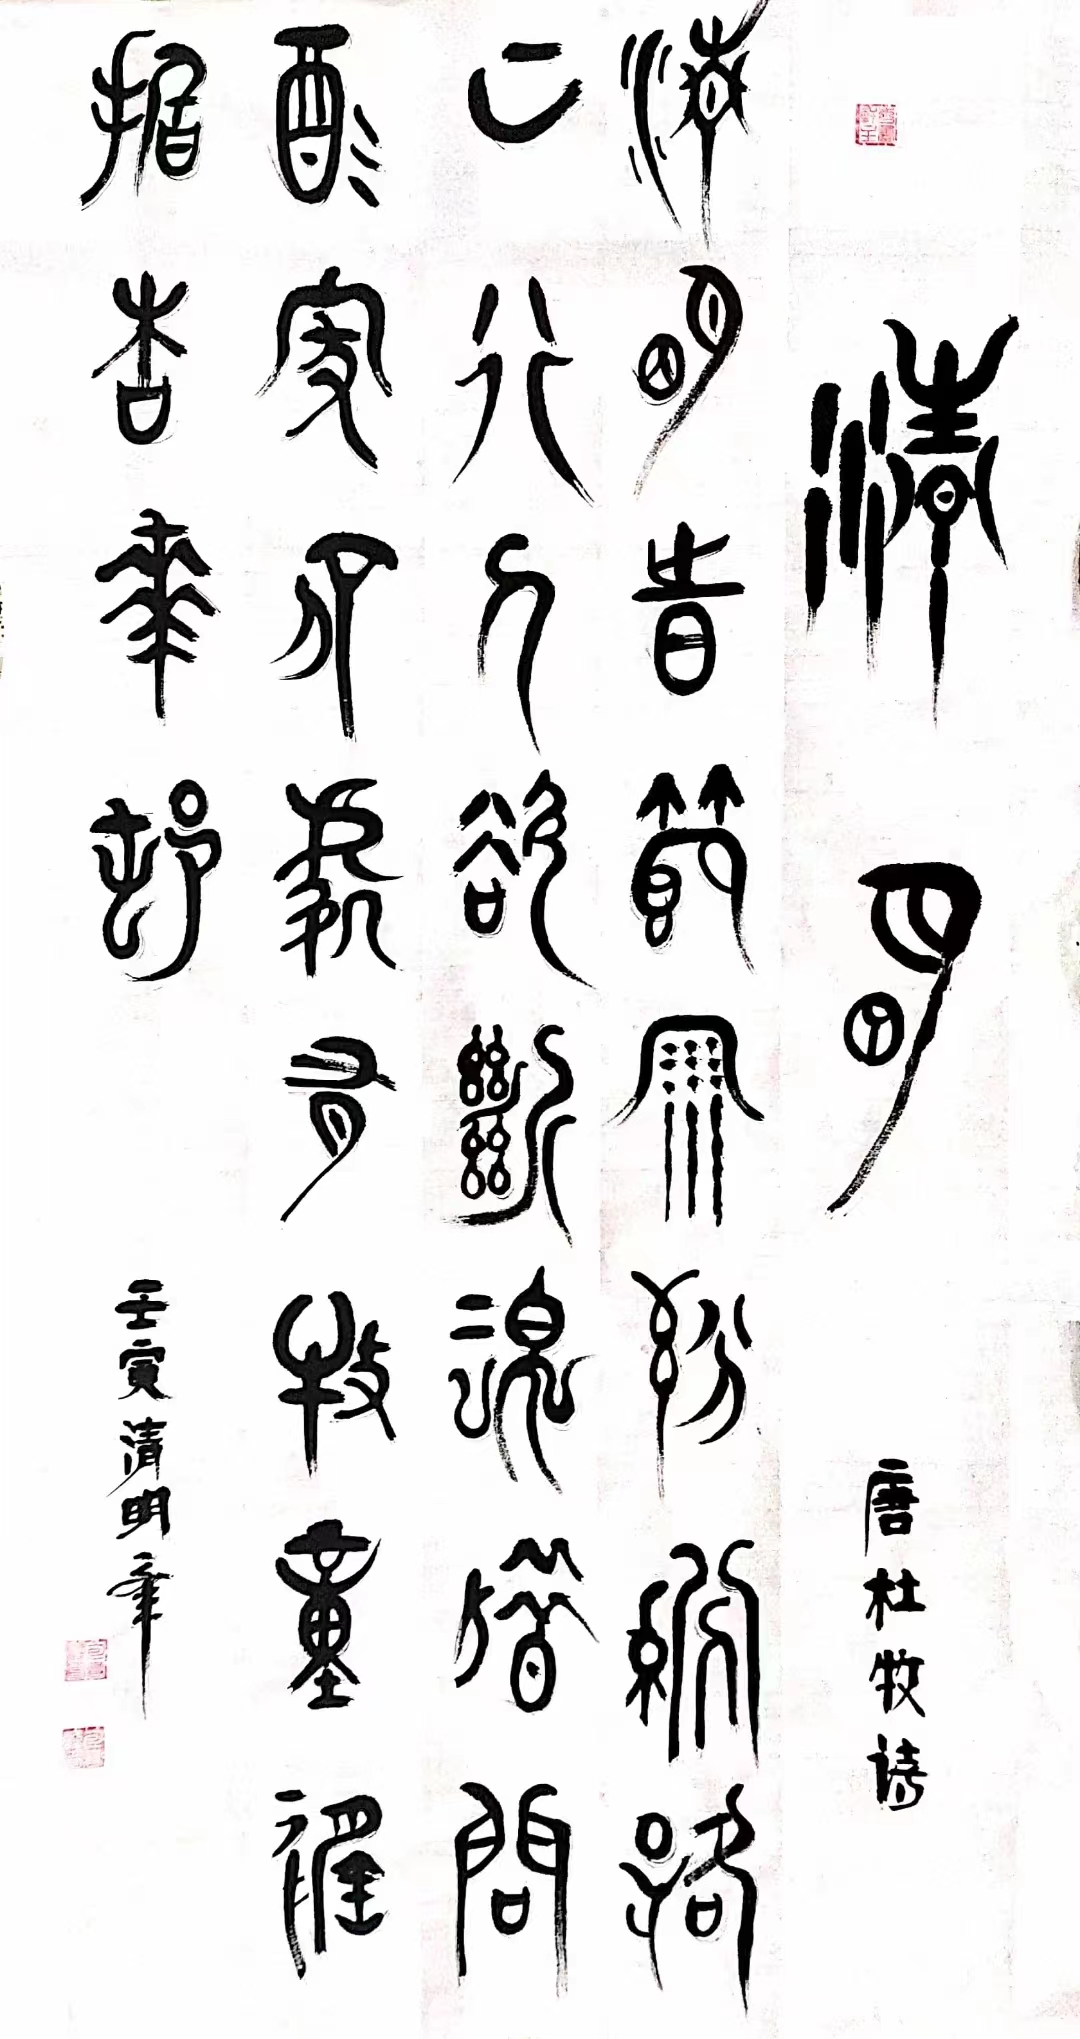 清明
唐杜牧詩
清明旹節雨紛紛路
上行人欲斷魂借問
酒家何處有牧童遙
指杏華邨
壬寅清明